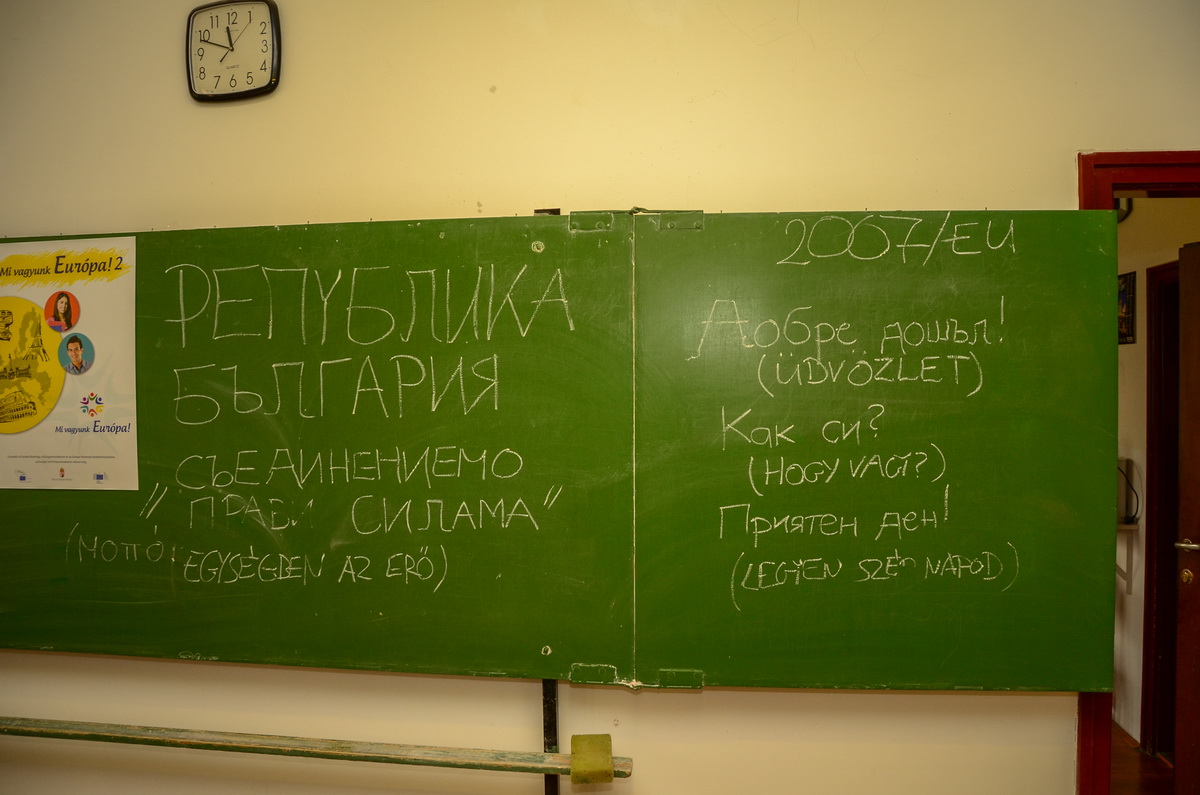 11 12 1
10 2
9 3
8 4
7 6 5
QUARTZ
Mi vagyunk Európa! 2
Mi vagyunk Európa!
РЕПУБЛИКА
БЪЛГАРИЯ
СЪЕДИНЕНИЕМО
"ПРАВИ СИЛАМА"
(MOTTÓ: EGYSÉGBEN AZ ERŐ)
2007/EU
Добре дошъл!
(ÜDVÖZLET)
Как си?
(HOGY VAGY?)
Приятен ден!
(LEGYEN SZÉP NAPOD)